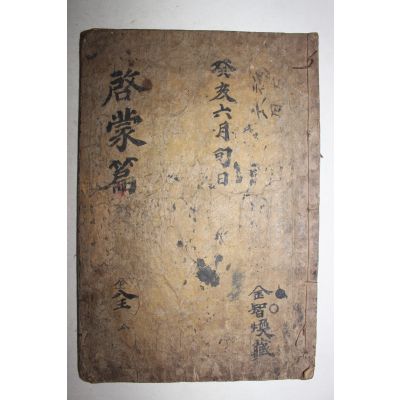 癸亥六月旬日
啓蒙篇
金智煥藏